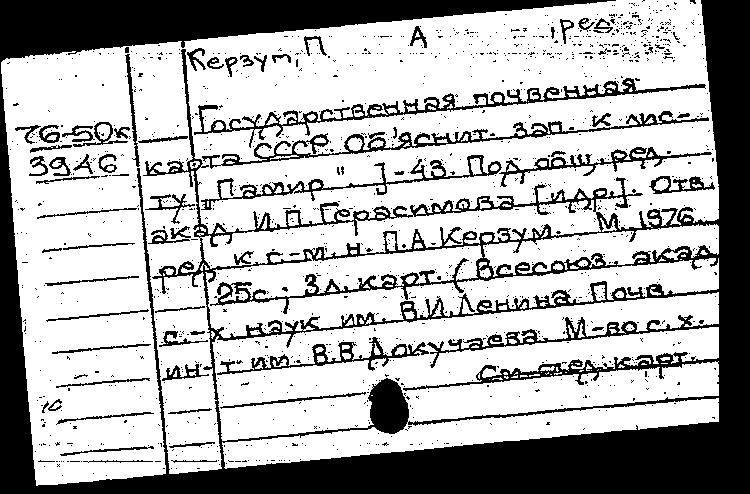 Керзум, П А , ред.
Государственная почвенная
76-50к
карта СССР. Об'яснит. зап. к лис-
3946
ту „Памир". J-43. Под общ. ред.
акад. И.П. Герасимова [и др.]. Отв.
ред. к. с.-м. н. П.А. Керзум. М., 1976.
25с; 3л. карт. (Всесоюз. акад.
с.-х. наук им. В.И. Ленина. Почв.
ин-т им. В.В. Докучаева. М-во с. х.
См след. карт.
10